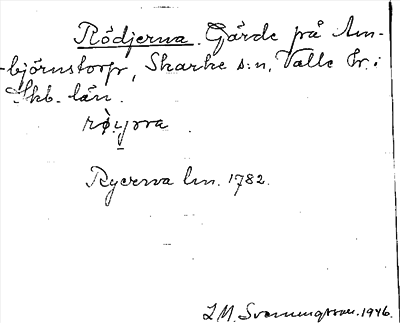 Rödjerna. Gärde på Am-
-björnstorp, Skarke s:n, Valle hr:
Skb. län.
rø̀y̱ɳa.
Ryerna lm. 1782.
L.M. Svenungsson. 1946.